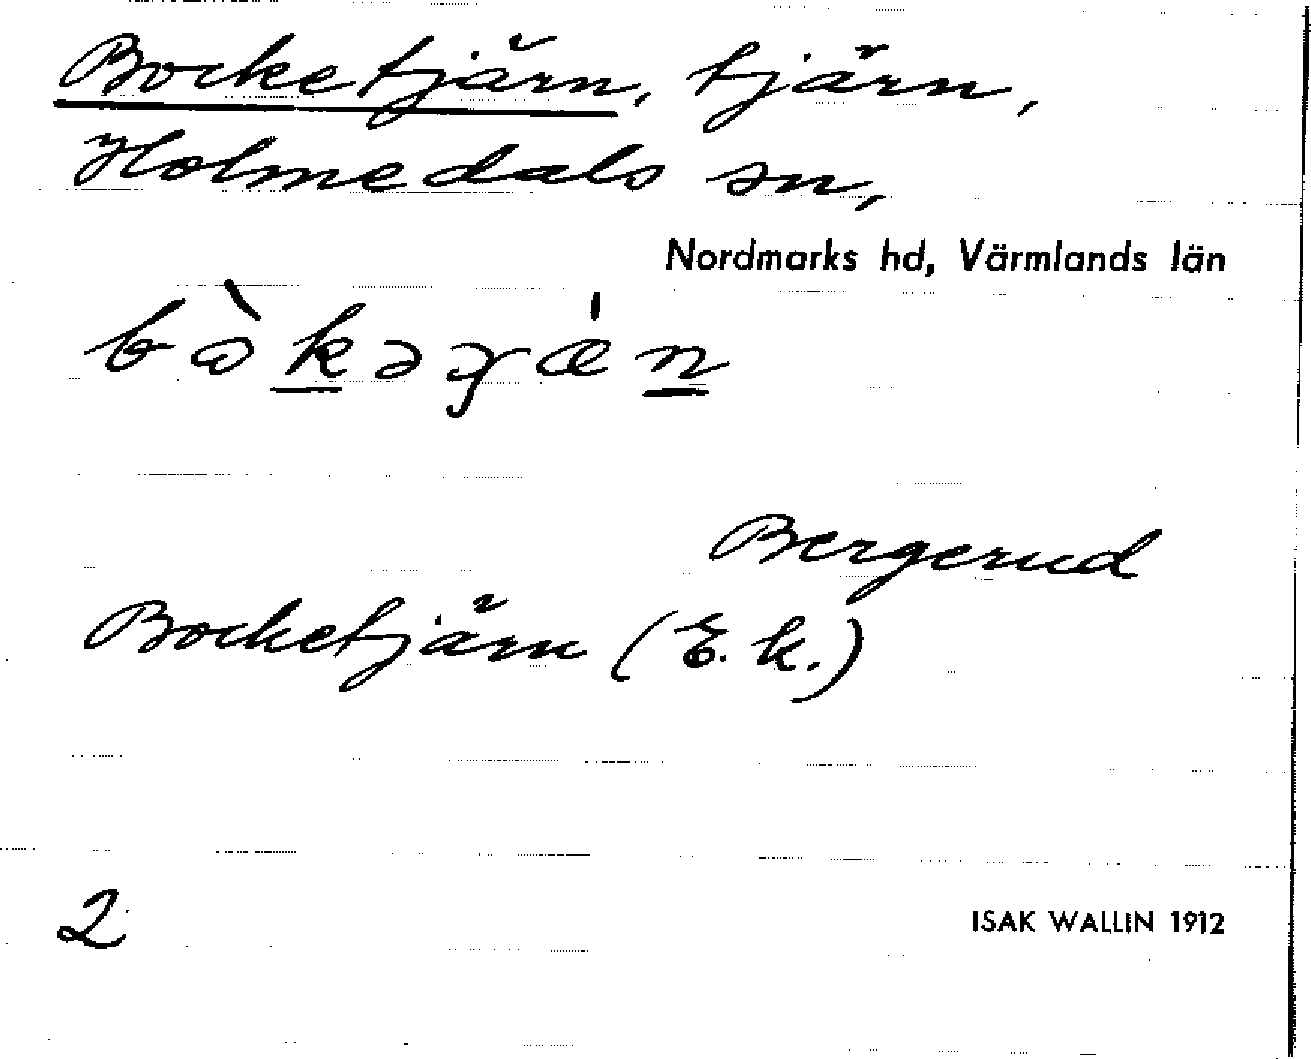 Bocketjärn, tjärn,
Holmedals sn,
Nordmarks hd, Värmlands län
Bergerud
Bocketjärn (E. k.)
2
ISAK WALLIN 1912